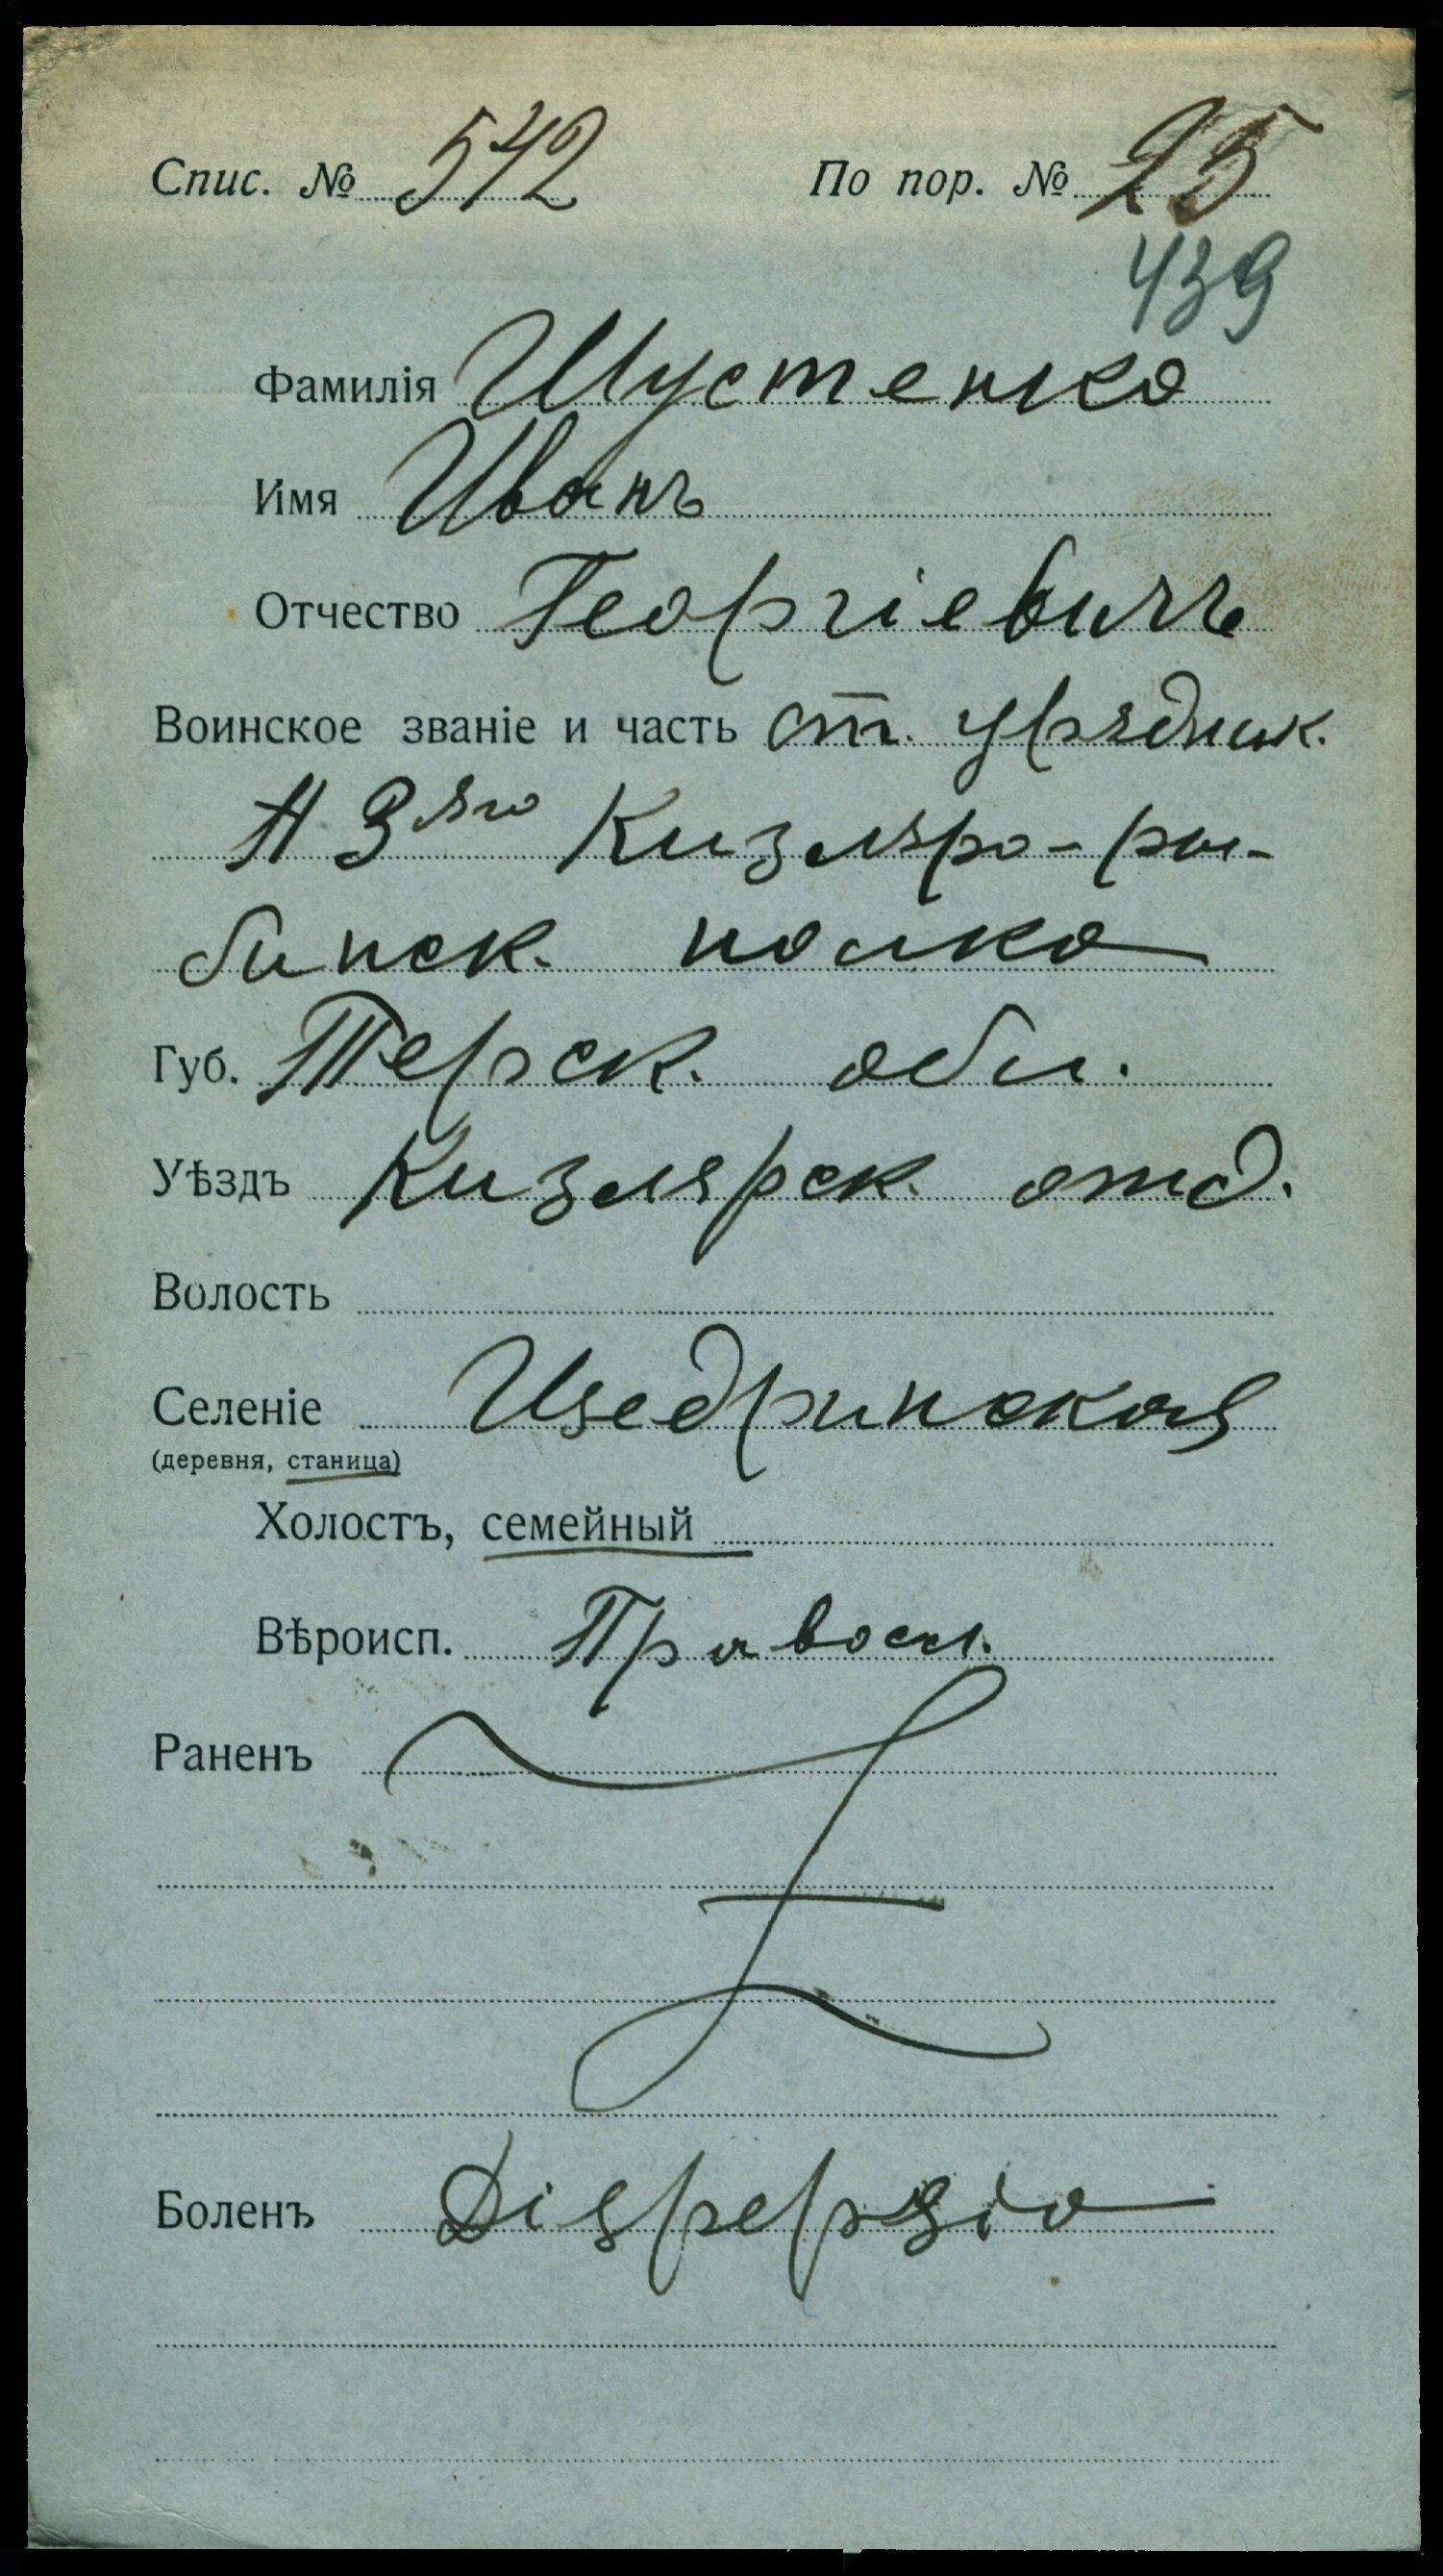 Спис. № 542 По пор. № 25
439
Фамилія Шустенко
Имя Иванъ
Отчество Георгіевичъ
Воинское званіе и часть ст. урядник.
3яго Кизляро-гре-
бинск. полка
Губ. Терск. обл.
Уѣздъ Кизлярск. отд.
Волость
Селеніе Щедринская
(деревня, станица)
Холостъ, семейный
Вѣроисп. Правосл.
Раненъ
Боленъ Dispepsia